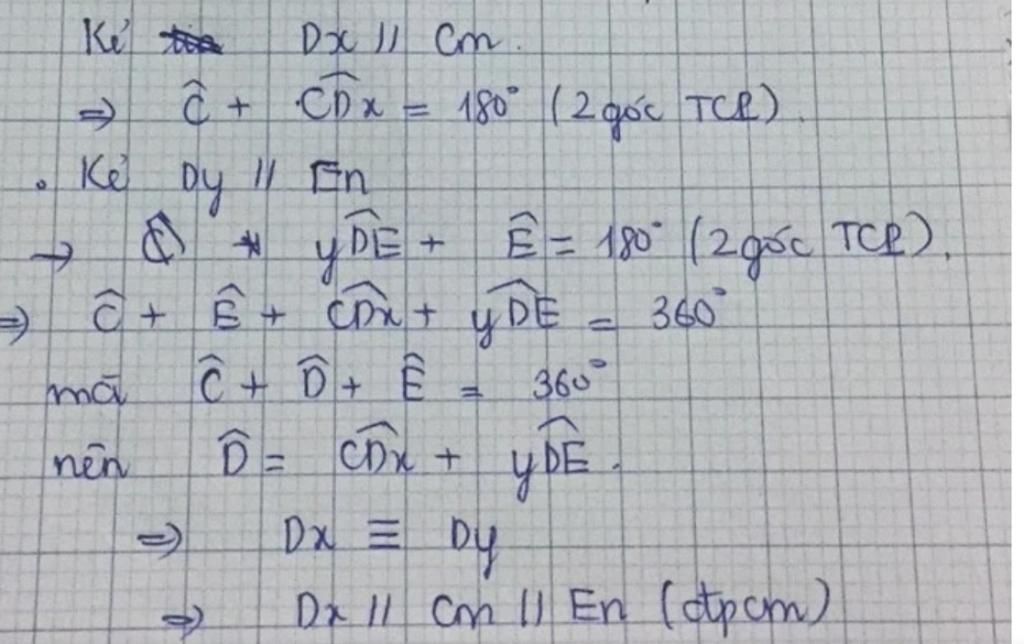 Kẻ Dx // Cm.
⇒ Ĉ + CDx̂ = 180° (2 góc TCP).
. Kẻ Dy // En
→ yDÊ + Ê = 180° (2 góc TCP).
⇒ Ĉ + Ê + CDx̂ + yDÊ = 360°
mà Ĉ + D̂ + Ê = 360°
nên D̂ = CDx̂ + yDÊ.
⇒ Dx ≡ Dy
⇒ Dx // Cm // En (đpcm)